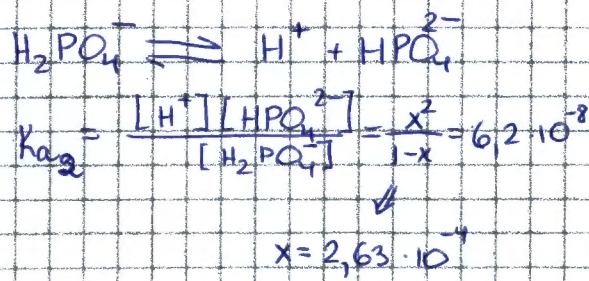 H₂PO₄⁻ ⇌ H⁺ + HPO₄²⁻
Ka₂ = [H⁺][HPO₄²⁻] / [H₂PO₄⁻] = x² / 1-x = 6,2·10⁻⁸
⇓
x = 2,63·10⁻⁴